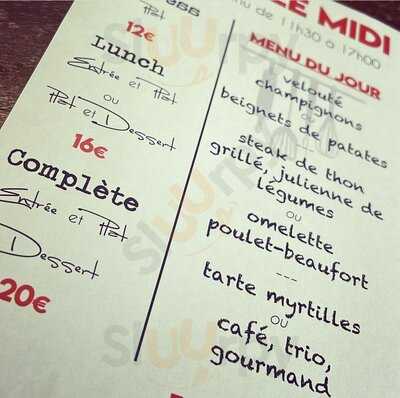 Plat
12€
Lunch
Entrée et Plat
ou
Plat et Dessert
16€
Complète
Entrée et Plat
Dessert
20€
LE MIDI
nu de 11h30 à 17h00
MENU DU JOUR
velouté
champignons
ou
beignets de patates
---
steak de thon
grillé, julienne de
légumes
ou
omelette
poulet-beaufort
---
tarte myrtilles
ou
café, trio,
gourmand